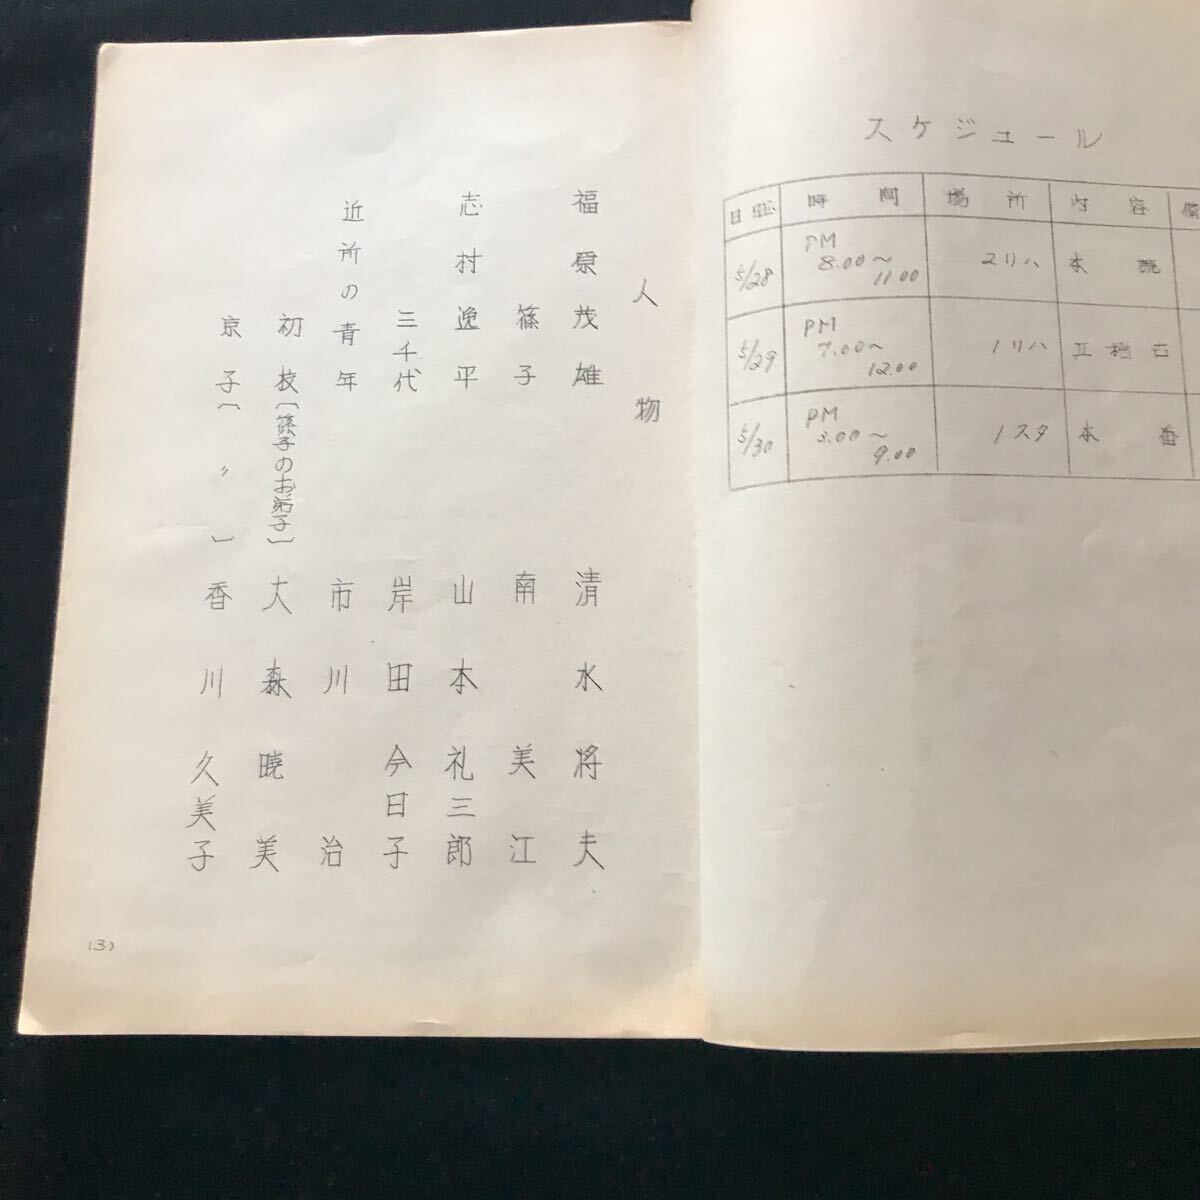 スケジュール
日程 時間 場所 内容
5/28 PM 8.00～11.00 2リハ 本読
5/29 PM 7.00～12.00 1リハ 立稽古
5/30 PM 9.00 1スタ 本番
人物
福原茂雄 清水将夫
篠子 南美江
志村逸平 山本礼三郎
三千代 岸田今日子
近所の青年 市川治
初枝〔篠子のお弟子〕 大森暁美
京子〔〃〕 香川久美子
(3)